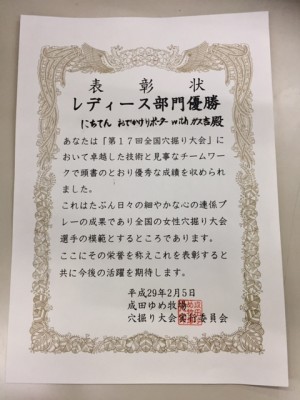 表彰状
レディース部門優勝
にちてん おでかけリポーター with ガス吉殿
あなたは「第17回全国穴掘り大会」に
おいて卓越した技術と見事なチームワー
クで頭書のとおり優秀な成績を収められ
ました。
これはたぶん日々の細やかな心の連係プ
レーの成果であり全国の女性穴掘り大会
選手の模範とするところであります。
ここにその栄誉を称えこれを表彰すると
共に今後の活躍を期待します。
平成29年2月5日
成田ゆめ牧場
穴掘り大会実行委員会